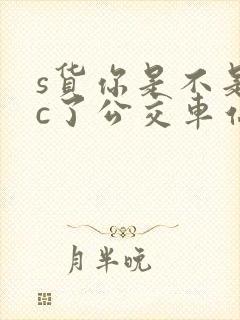 s货你是不是
c了公交车
月半晚